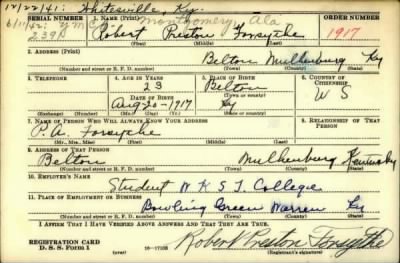 12/22/41: Whitesville, Ky.
6/11/42: Y.M.C. Montgomery, Ala
SERIAL NUMBER 1. NAME (Print) ORDER NUMBER
239 Robert Preston Forsythe 1917
(First) (Middle) (Last)
2. ADDRESS (Print)
Belton Muhlenburg Ky
(Number and street or R. F. D. number) (Town) (County) (State)
3. TELEPHONE 4. AGE IN YEARS 5. PLACE OF BIRTH 6. COUNTRY OF CITIZENSHIP
23 Belton
(Town or county)
DATE OF BIRTH
Aug-20-1917 Ky U S
(Mo.) (Day) (Yr.) (State or country)
7. NAME OF PERSON WHO WILL ALWAYS KNOW YOUR ADDRESS 8. RELATIONSHIP OF THAT PERSON
P.A. Forsythe
(Mr., Mrs., Miss) (First) (Middle) (Last)
9. ADDRESS OF THAT PERSON
Belton Muhlenburg Kentucky
(Number and street or R. F. D. number) (Town) (County) (State)
10. EMPLOYER'S NAME
Student W K S T College
11. PLACE OF EMPLOYMENT OR BUSINESS
Bowling Green Warren Ky
(Number and street or R. F. D. number) (Town) (County) (State)
I AFFIRM THAT I HAVE VERIFIED ABOVE ANSWERS AND THAT THEY ARE TRUE.
REGISTRATION CARD
D. S. S. Form 1 16—17105 Robert Preston Forsythe
(Registrant's signature)